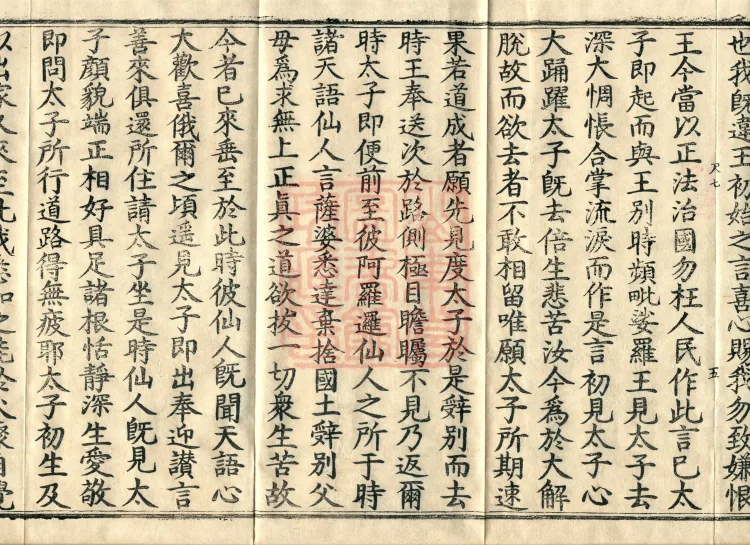 也我旣違王初始之言喜心賜我勿致嫌恨
王今當以正法治國勿枉人民作此言已太
子卽起而與王別時頻毗娑羅王見太子去
深大惆悵合掌流淚而作是言初見太子心
大踊躍太子旣去倍生悲苦汝今爲於大解
脫故而欲去者不敢相留唯願太子所期速
果若道成者願先見度太子於是辭別而去
時王奉送次於路側極目瞻矚不見乃返爾
時太子卽便前至彼阿羅邏仙人之所于時
諸天語仙人言薩婆悉達棄捨國土辭別父
母爲求無上正眞之道欲拔一切衆生苦故
今者已來垂至於此時彼仙人旣聞天語心
大歡喜俄爾之頃遥見太子卽出奉迎讃言
善來俱還所住請太子坐是時仙人旣見太
子顏貌端正相好具足諸根恬靜深生愛敬
卽問太子所行道路得無疲耶太子初生及
以出家又來至此我悉知之能於火聚自覺
尺七
五